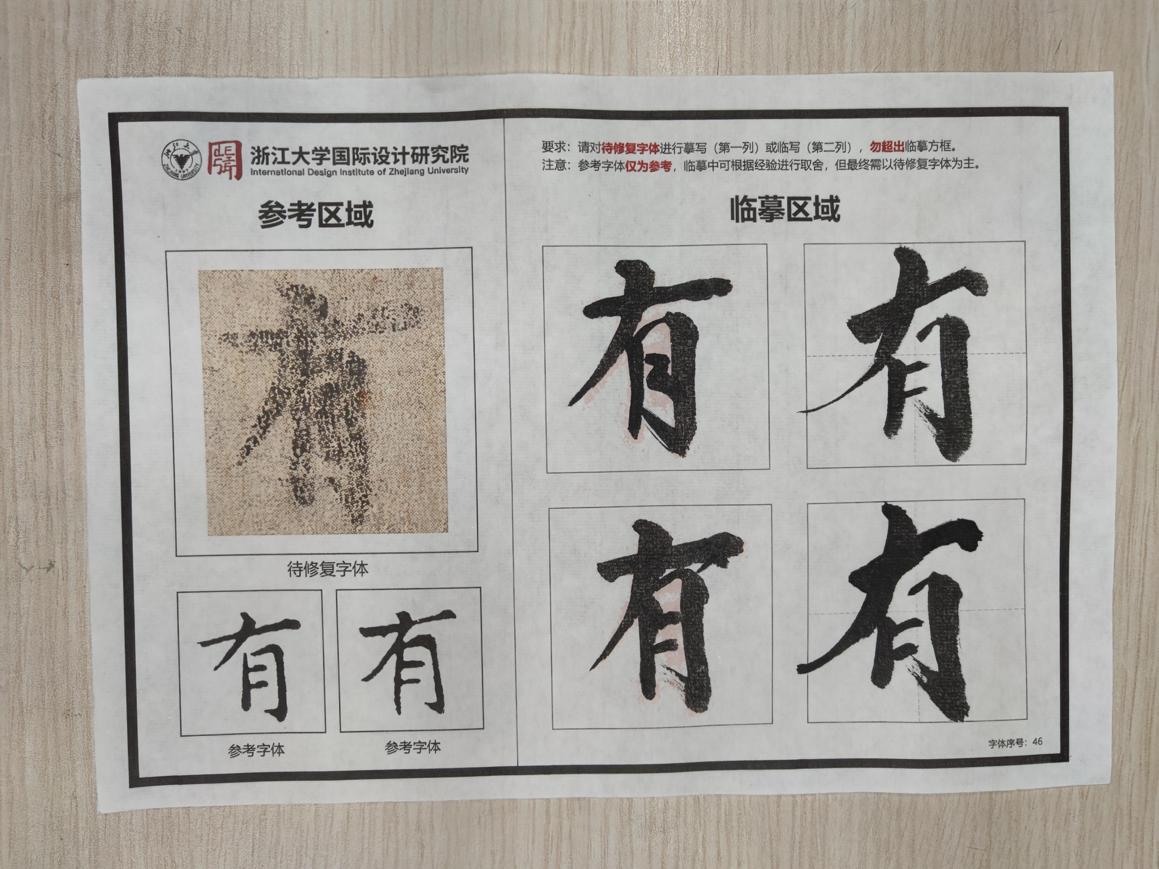 浙江大学国际设计研究院
International Design Institute of Zhejiang University
参考区域
有
待修复字体
有 有
参考字体 参考字体
要求：请对待修复字体进行摹写（第一列）或临写（第二列），勿超出临摹方框。
注意：参考字体仅为参考，临摹中可根据经验进行取舍，但最终需以待修复字体为主。
临摹区域
有 有
有 有
字体序号：46